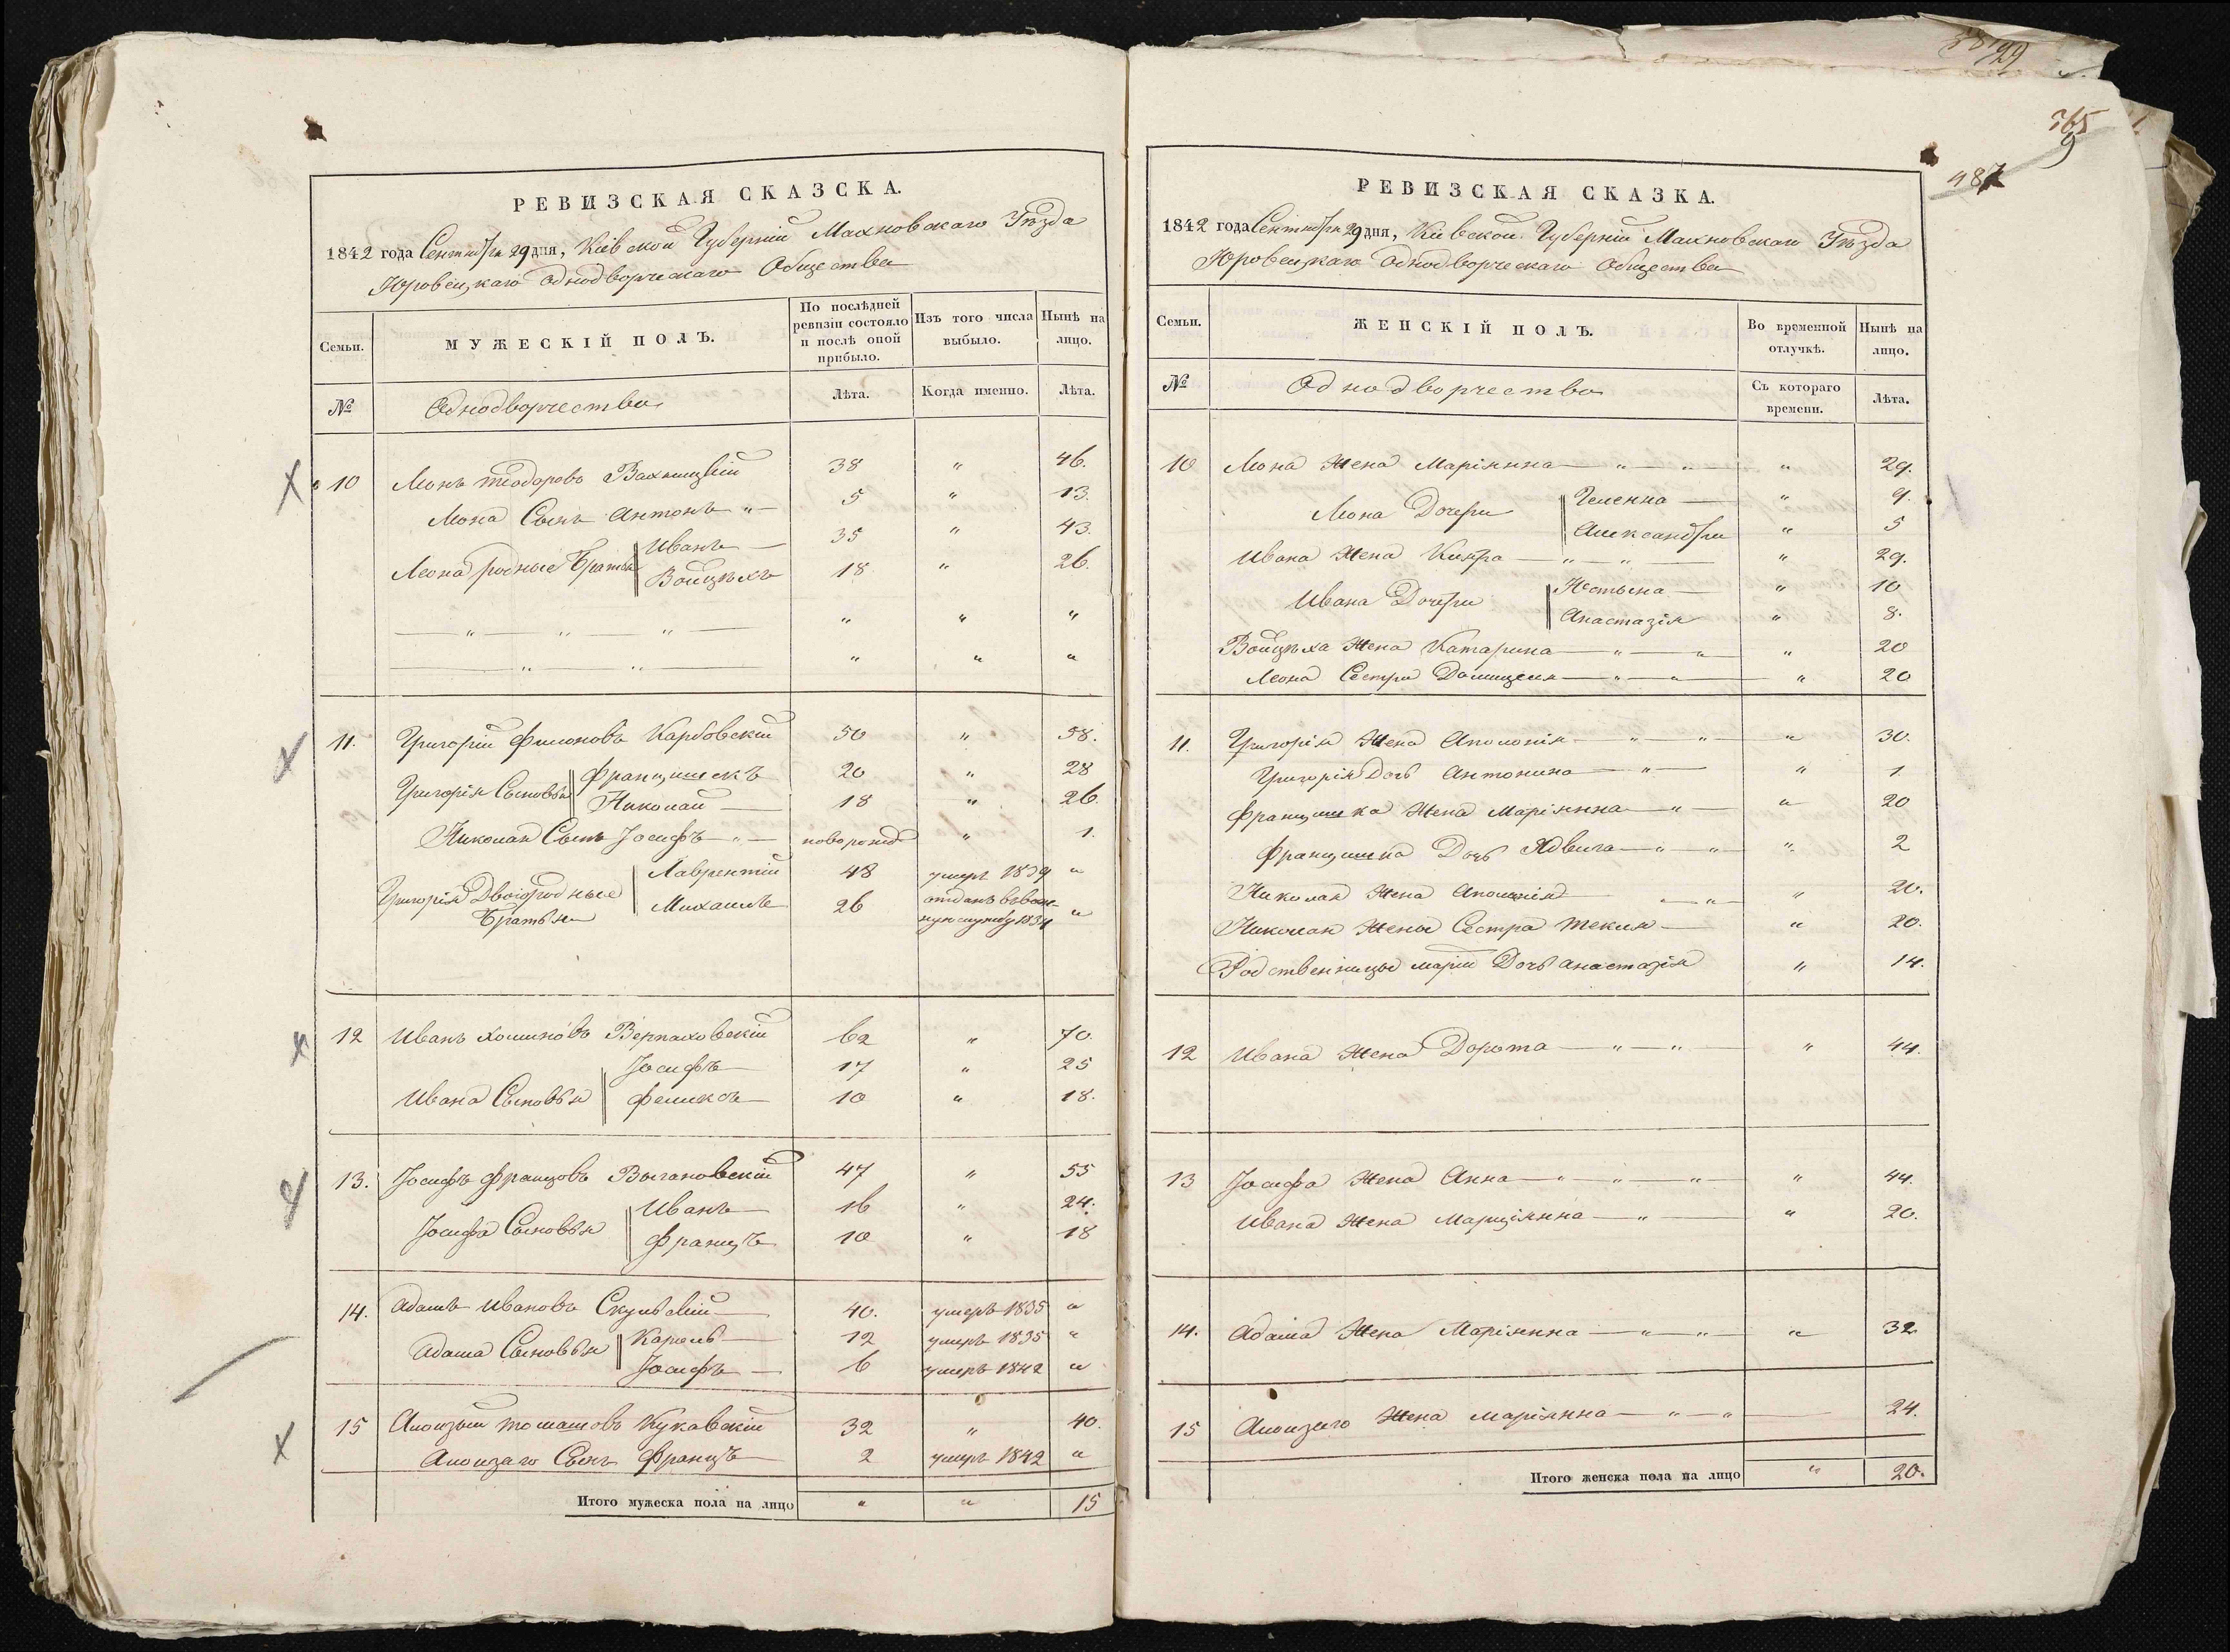 РЕВИЗСКАЯ СКАЗСКА.
1842 года Сентября 29 дня, Кіевской Губерніи Махновскаго Уѣзда
Юровецкаго Однодворческаго Общества
Семьи.
МУЖЕСКІЙ ПОЛЪ.
По послѣдней ревизіи состояло и послѣ оной прибыло.
Изъ того числа выбыло.
Нынѣ на лицо.
№
Однодворчество
Лѣта.
Когда именно.
Лѣта.
10 Леонъ Теодоровъ 38 " 46.
Леона Сынъ Антонъ " 5 " 13.
Леона родные Братья Иванъ 35 " 43.
Войцѣхъ 18 " 26.
" " " " " "
" " " " "
11. Григорій Филоновъ Карбовскій 50 " 58.
Григорія Сыновья Францишекъ 20 " 28
Николай 18 " 26.
Николая Сынъ Іосифъ " новорожд " 1.
Григорія Двоюродные Братья Лаврентій 48 умеръ 1839 "
Михаилъ 26 отданъ въ воен-
ную службу 1834 "
12 Иванъ Вернаховскій 62 " 70.
Іосифъ 17 " 25
Ивана Сыновья Феликсъ 10 " 18.
13. Іосифъ Францовъ Выгановскій 47 " 55
Іосифа Сыновья Иванъ 16 " 24.
Францъ 10 " 18
14. Адамъ Ивановъ Скульскій 40. умеръ 1835 "
Адама Сыновья Кароль 12 умеръ 1835 "
Іосифъ 6 умеръ 1842 "
15 Алоизый Томашовъ Кукавскій 32 " 40.
Алоизаго Сынъ Францъ 2 умеръ 1842 "
Итого мужеска пола на лицо " " 15
365
9
487
РЕВИЗСКАЯ СКАЗКА.
1842 года Сентября 29 дня, Кіевской Губерніи Махновскаго Уѣзда
Юровецкаго Однодворческаго Общества
Семьи.
ЖЕНСКІЙ ПОЛЪ.
Во временной отлучкѣ.
Нынѣ на лицо.
№
Однодворчество
Съ котораго времени.
Лѣта.
10 Леона Жена Маріянна " " " 29.
Леона Дочери Геленна " 9.
Александра " 5
Ивана Жена " " " 29.
Ивана Дочери Юстына " 10
Анастазія " 8.
Войцѣха Жена Катарина " " " 20
Леона Сестра Домицеля " " " 20
11. Григорія Жена Аполонія " " " 30.
Григорія Дочь Антонина " " 1
Францишка Жена Маріянна " " 20
Францишка Дочь Ядвига " " " 2
Николая Жена Аполонія " " " 20.
Николая Жены Сестра Текля " 20.
Родственницы Маріи Дочь Анастазія " 14.
12 Ивана Жена Дорота " " " 44.
13 Іосифа Жена Анна " " " " 44.
Ивана Жена Марціянна " " 20.
14. Адама Жена Маріянна " " " 32
15 Алоизаго Жена Маріянна " " 24.
Итого женска пола на лицо " 20.